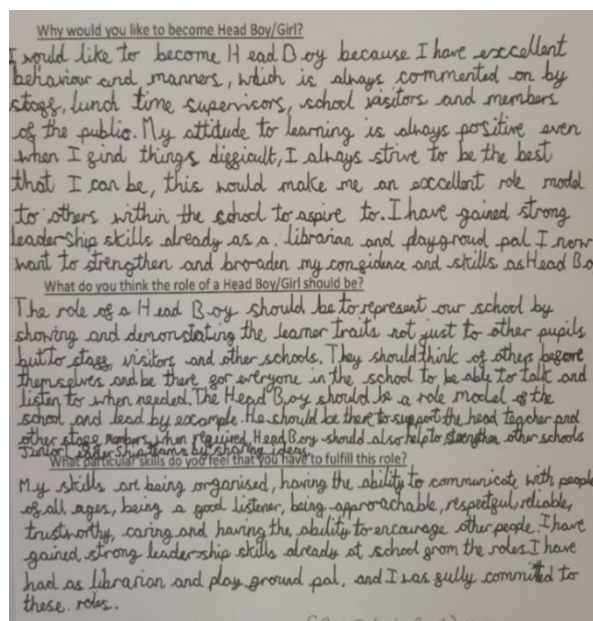 Why would you like to become Head Boy/Girl?
I would like to become Head Boy because I have excellent
behaviour and manners, which is always commented on by
staff, lunch time supervisors, school visitors and members
of the public. My attitude to learning is always positive even
when I find things difficult, I always strive to be the best
that I can be, this would make me an excellent role model
to others within the school to aspire to. I have gained strong
leadership skills already as a librarian and playgroud pal I now
want to strengthen and broaden my confidence and skills as Head Bo
What do you think the role of a Head Boy/Girl should be?
The role of a Head Boy should be to represent our school by
showing and demonstrating the learner traits not just to other pupils
but to staff, visitors and other schools. They should think of others before
themselves and be there for everyone in the school to be able to talk and
listen to when needed. The Head Boy should be a role model of the
school and lead by example. He should be there to support the head teacher and
other staff members when required, Head Boy should also help to strengthen other schools
Junior leadership teams by sharing ideas.
What particular skills do you feel that you have to fulfill this role?
My skills are being organised, having the ability to communicate with people
of all ages, being a good listener, being approrachable, respectful, reliable,
trustworthy, caring and having the ability to encourage other people. I have
gained strong leadership skills already at school from the roles I have
had as librarian and play ground pal, and I was fully committed to
these roles.